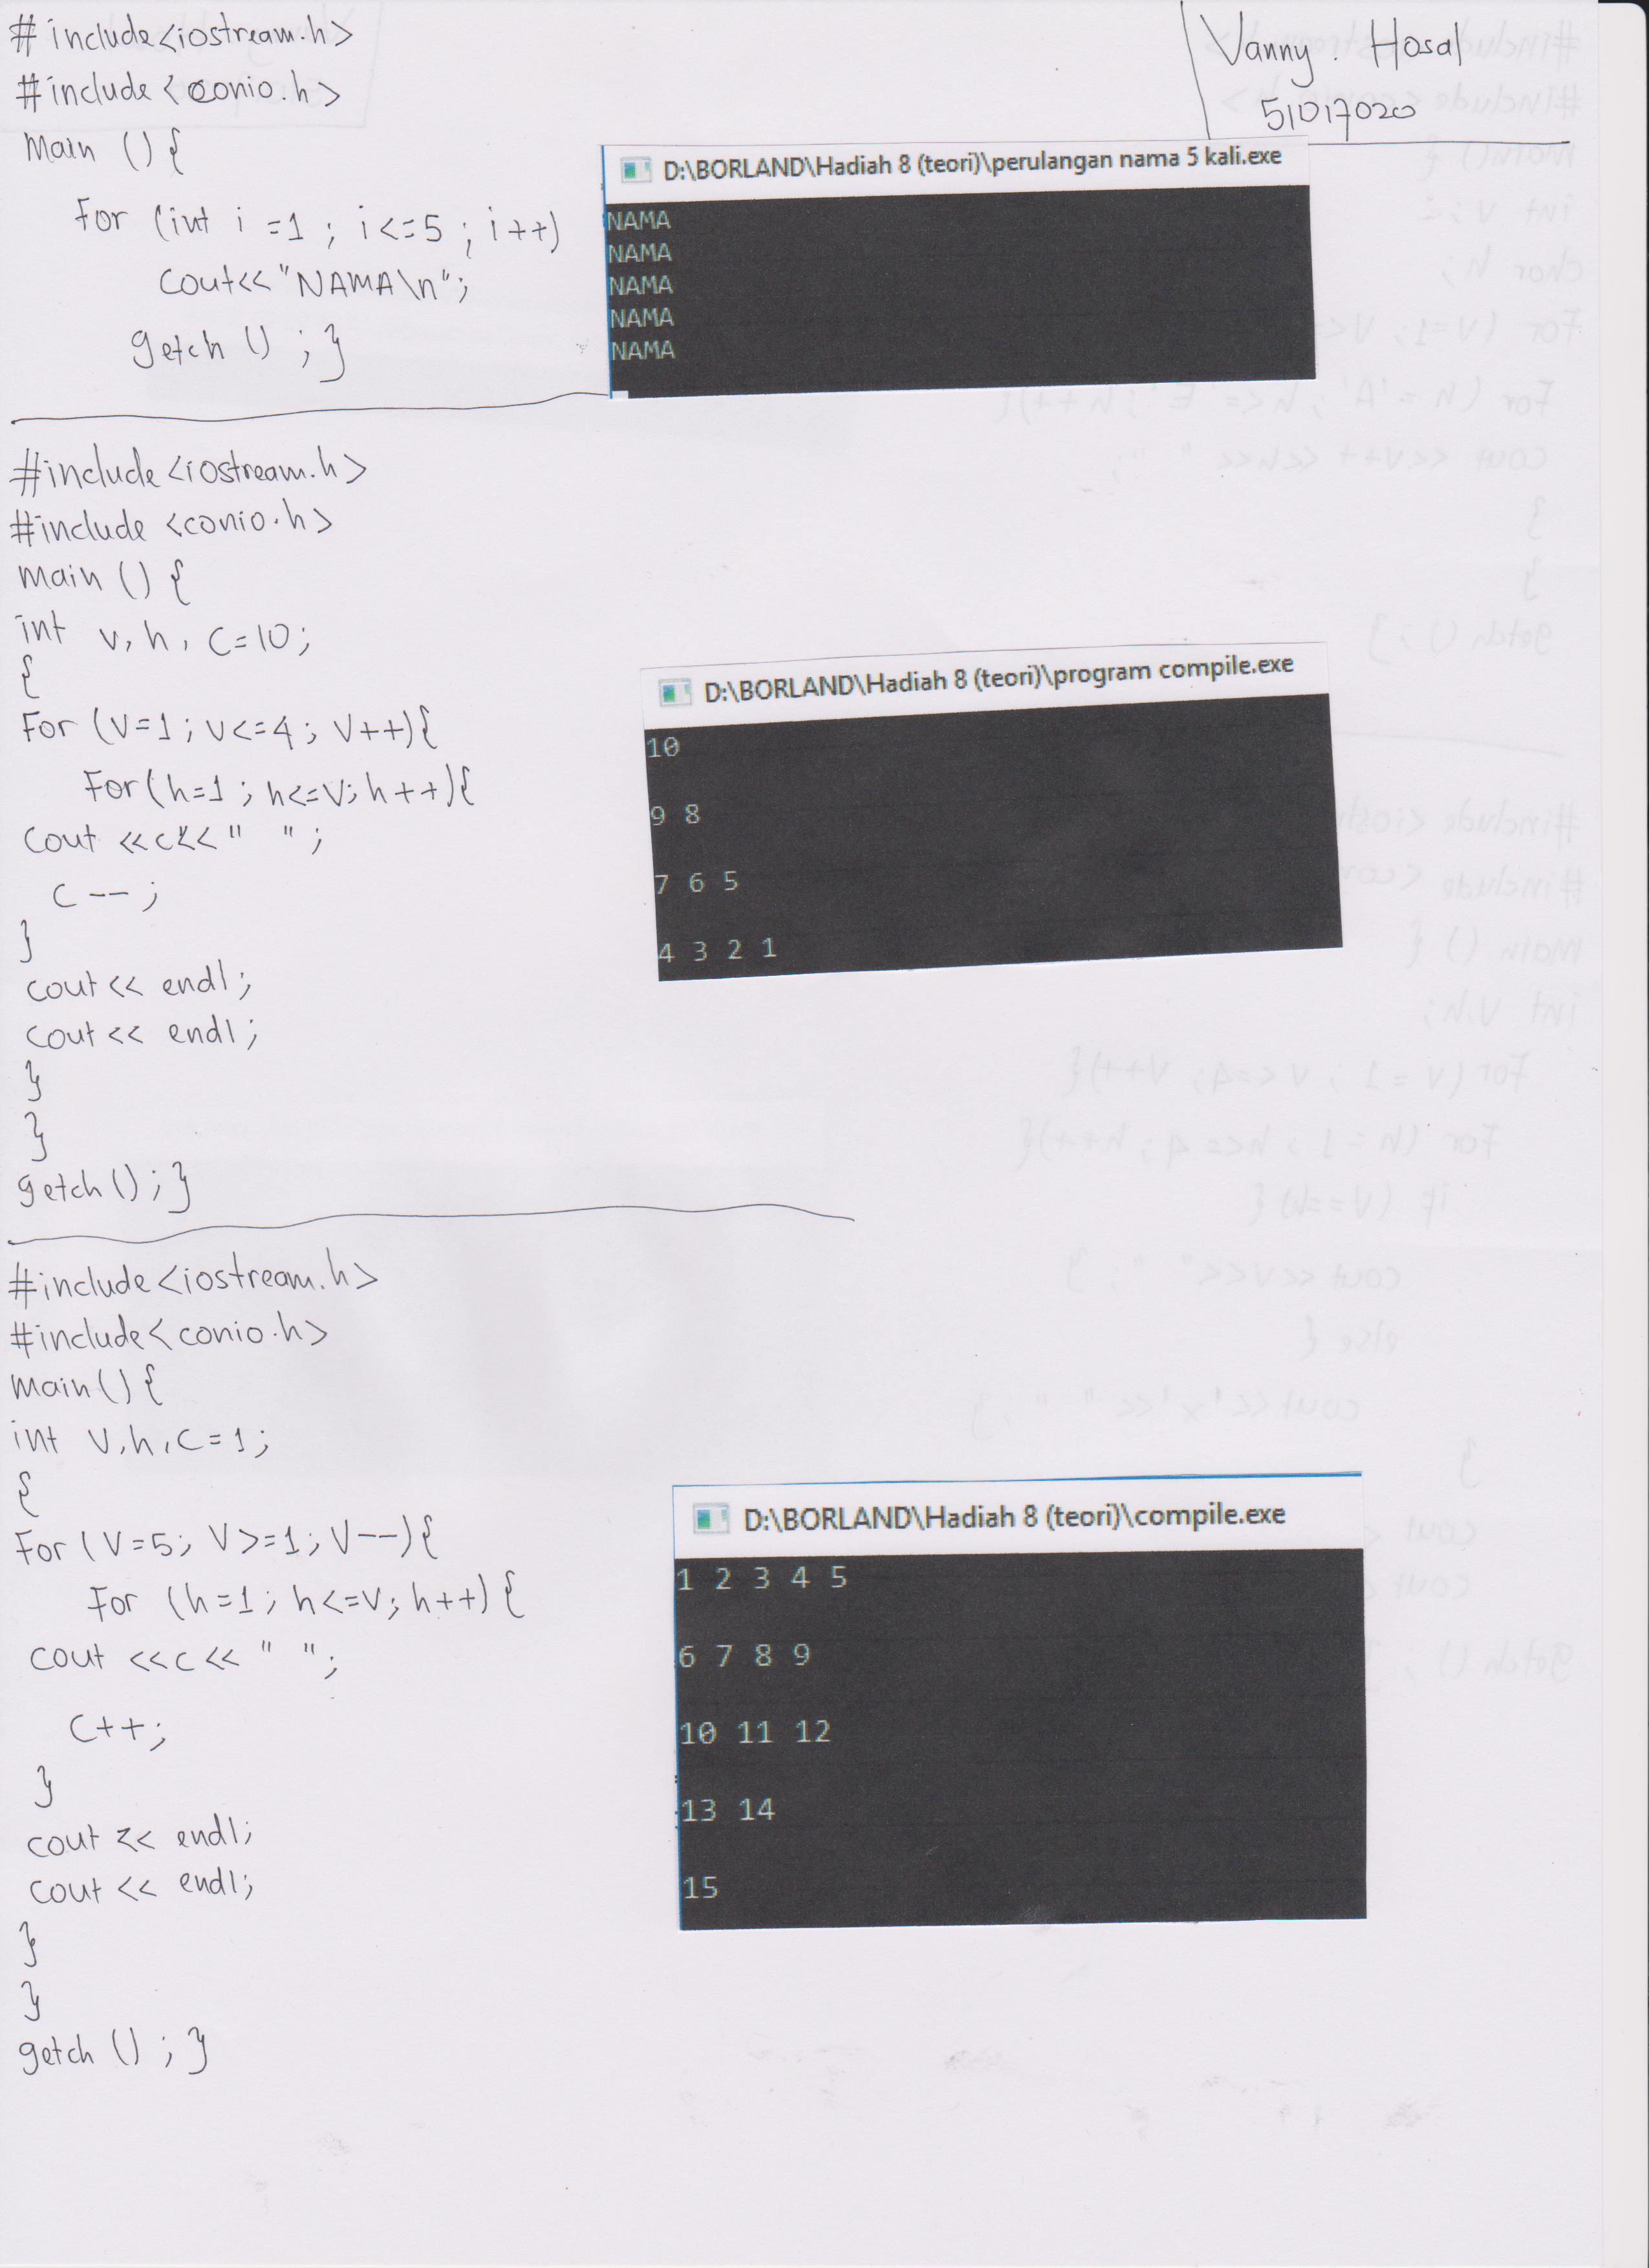 Vanny. Hosal
51017020
# include<iostream.h>
#include <conio.h>
main () {
For (int i =1 ; i<=5 ; i++)
cout<<"NAMA\n";
getch () ; }
D:\BORLAND\Hadiah 8 (teori)\perulangan nama 5 kali.exe
NAMA
NAMA
NAMA
NAMA
NAMA
#include <iostream.h>
#include <conio.h>
main () {
int v, h, c=10;
{
For (v=1 ; v<=4 ; v++){
For (h=1 ; h<=v; h++){
cout <<c<<" ";
c -- ;
}
cout << endl;
cout << endl;
}
}
getch () ; }
D:\BORLAND\Hadiah 8 (teori)\program compile.exe
10
9 8
7 6 5
4 3 2 1
#include <iostream.h>
#include < conio.h>
main () {
int v, h, c=1;
{
For (v=5; v>=1; v--){
For (h=1 ; h<=v; h++) {
cout <<c<< " ";
c++;
}
cout << endl;
cout << endl;
}
}
getch () ; }
D:\BORLAND\Hadiah 8 (teori)\compile.exe
1 2 3 4 5
6 7 8 9
10 11 12
13 14
15